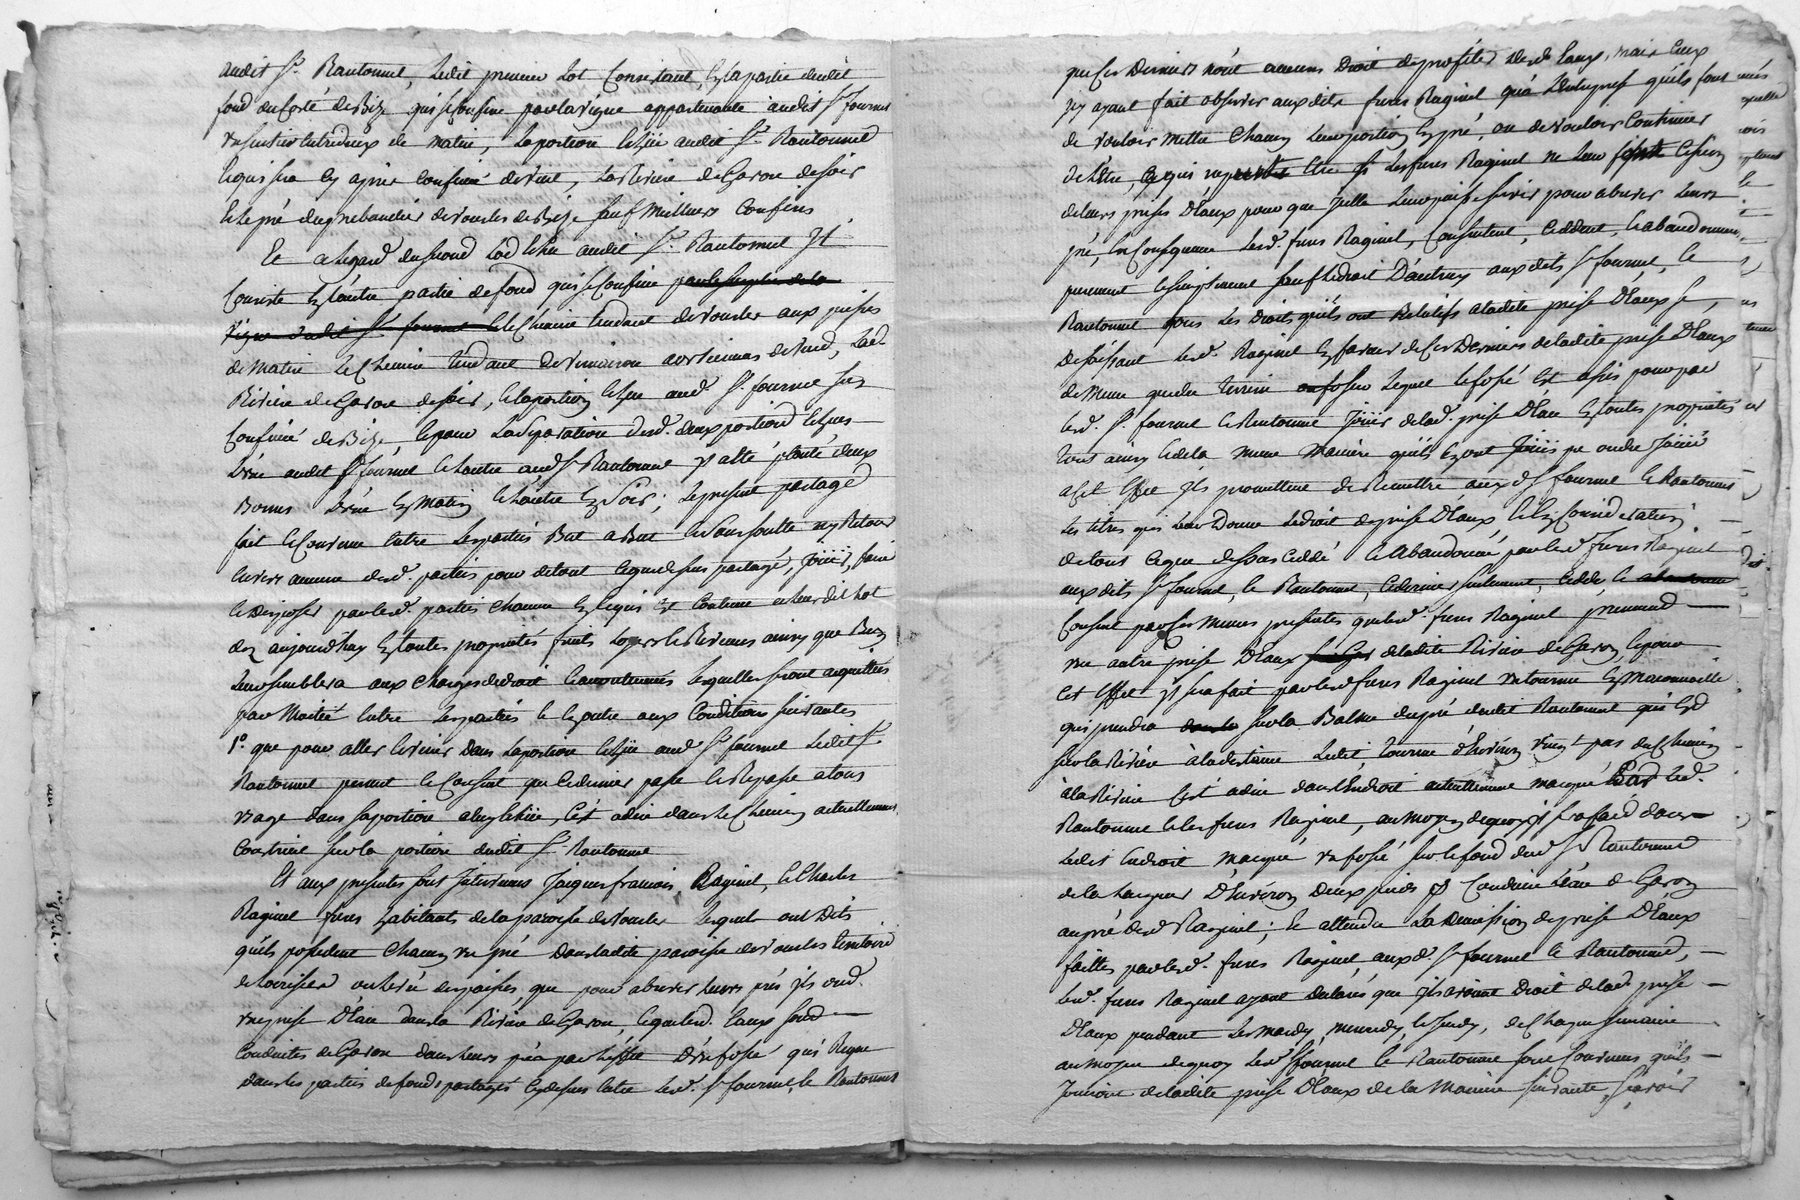 audit Sr. Rantonnet, ledit premier lot Consistant, En la partie dudit
fond du Costé de Bize, qui se Confine par la vigne appartenante audit Sr. fournel
un sentier entredeux de matin, la portion Echüe audit Sr. Rantonnet
le qui sera cy après Confinée de vent, la Riviere de Garon de soir
Et le pré de de vourles de Bize sauf meilleurs Confins
Et a legard du second Lod Echu audit Sr. Rantonnet Il
Consiste En l'autre partie de fond qui se Confine par le
vigne dudit Sr. fournel Et le Chemin tendant de vourles aux
de matin Le Chemin tendant de a de vend, Lad.
Riviere de Garon de soir, Et la portion Echue aud. Sr. fournel sus
Confinée de Bize, Et pour La Separation desd. deux portions Echues
L'une audit Sr. fournel Et l'autre aud. Sr. Rantonnet Il a été planté deux
Bornes L'une En Matin Et l'autre En Soir; Le present partage
fait Et Convenu Entre Les parties But a But Et sans soulte ny Retour
Envers aucune desd. parties pour de tout Ce que dessus partagé, Joüir, faire
Et disposer par lesd. parties Chacune En Ce qui Est Contenu a leur dit lot
dez aujourd'huy En toutes proprietés fruits Et Revenus ainsy que Bon
leur Semblera aux Charges de droit Et accoutumées Lesquelles seront acquittées
par Moitié Entre Les parties Et En outre aux Conditions suivantes
1o. que pour aller Et venir Dans la portion Echüe aud. Sr. fournel Ledit Sr.
Rantonnet permet Et Consent que Ce dernier passe Et Repasse a tous
usage dans la portion a luy Echüe, C'est adire dans le Chemin actuellement
Construit sur la portion dudit Sr. Rantonnet
Et aux presentes sont Intervenus Jacques francois Raginel, Et Charles
Raginel freres habitants de la paroisse de vourles Lesquels ont Dits
qu'ils possedent Chacun un pré Dans ladite paroisse de vourles territoire
que pour abreuver Leurs prés Ils ont
une prise D'eau dans la Riviere de Garon, Lesquelles Eaux sont
Conduites de Garon dans Leurs prés par l'effet D'un fossé qui Regne
dans les parties de fonds partagés Cy dessus Entre lesd. Sr. fournel, Et Rantonnet
que Ces Derniers n'ont aucun Droit de profiter desd. Eaux, mais Ceux
cy ayant fait observer aux dits freres Raginel qu'ils font
de vouloir mettre Chacun Leur portion En pré, ou de vouloir Continuer
de L'Etre, Ce qui Et Les freres Raginel ne leur
de leurs prises D'Eaux pour que Icelle Leur puisse servir pour abreuver Leurs
pré, En Consequence Lesd. freres Raginel, Consentent, Cedent, Et abandonnent
purement Et simplement sauf Le droit D'autruy aux dits Sr. fournel, Et
Rantonnet tous Les Droits qu'ils ont Relatifs a ladite prise D'Eaux se
Desaisissant Lesd. Raginel En faveur de Ces Derniers de ladite prise D'Eaux
de meme que du terrein ou fossé sur Lequel Le fossé Est assis pour par
Lesd. Sr. fournel Et Rantonnet Joüir de lad. prise D'Eau En toutes proprietés
tout ainsy Et de la meme Maniere qu'ils En ont Joüis pu ou dû Joüir
a Cet Effet Ils promettent de Remettre auxd. Sr. fournel Et Rantonnet
Les titres qui Leur Donne Le droit de prise D'Eaux, Et En Consideration
de tout Ce que dessus Cedé Et Abandonné par lesd. freres Raginel
aux dits Sr. fournel, Et Rantonnet, Ce dernier seulement, Cede, Et abandonne
Consent par Ces memes presentes que lesd. freres Raginel prennent
une autre prise D'Eaux de ladite Riviere de Garon, Et pour
Cet Effet Il sera fait par lesd. freres Raginel une tourne En Maconnerie
qui prendra sur la Balme du pré dudit Rantonnet qui Est
sur la Riviere à la distance Ladite tourne d'Environ vingt pas du Chemin
à la Riviere C'est adire dans L'Endroit actuellement marqué Par led.
Rantonnet Et les freres Raginel, au moyen de quoy il sera fait dans
Ledit Endroit marqué un fossé sur le fond dud. Sr. Rantonnet
de la Largeur D'Environ deux pieds pr. Conduire L'Eau de Garon
au pré desd. Raginel; Et attendu La Demission de prise D'Eaux
faittes par lesd. freres Raginel auxd. Sr. fournel Et Rantonnet,
Lesd. freres Raginel ayant Declarés que Ils avaient Droit de lad. prise
D'Eaux pendant Les mardy, mercredy, Et Jeudy, de Chaque semaine
au moyen de quoy Lesd. Sr. fournel Et Rantonnet sont Convenus qu'ils
Jouiront de ladite prise D'Eaux de la Maniere suivante, Sçavoir